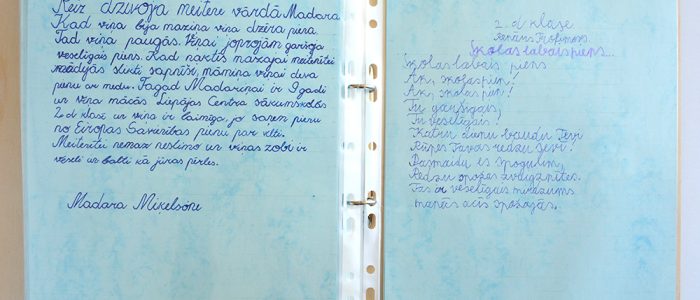 Reiz dzīvoja meitene vārdā Madara
Kad viņa bija maziņa viņa dzēra pienu
Tad viņa paugās. Viņai joprojām garšoja
veselīgais piens. Kad naktīs mazajai meitenītei
rādījās slikti sapnīši, māmiņa viņai deva
pienu ar medu. Tagad Madariņai ir 9 gadi
un viņa mācās Liepājas Centra sākumskolas
2.d klasē un viņa ir laimīga, jo saņem pienu
no Eiropas Savienības pienu par velti.
Meitenīte nemaz neslimo un viņas zobi ir
veseli un balti kā jūras pērles.
Madara Miķelsone
2. d klase
Skolas labais piens...
Skolas labais piens
Ak, skolas piens!
Ak, skolas piens!
Tu garšīgais,
Tu veselīgais!
Katru dienu baudu Tevi
Rūpes Tavas redzu Tevī!
Pasmaidu es spogulim,
Redzu spožas zvaigznītes.
Tas ir veselīgais mirdzums
manās acīs spožajās.